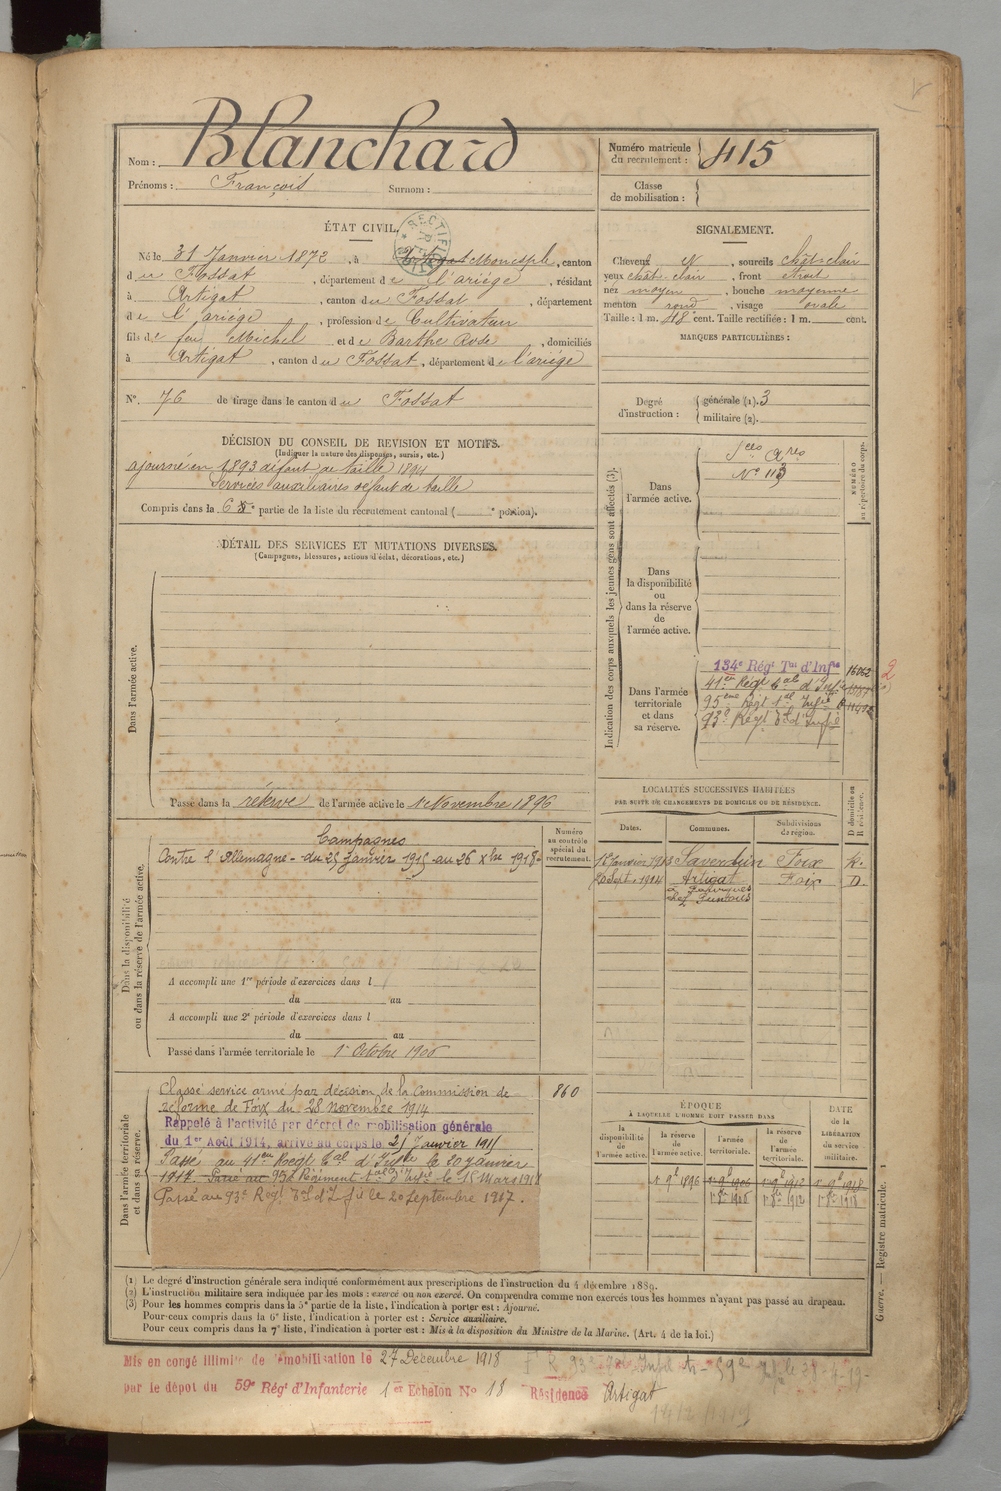 Nom : Blanchard
Prénoms : François Surnom :
Numéro matricule du recrutement : 415
Classe de mobilisation :
ÉTAT CIVIL.
Né le 31 Janvier 1872, à Monesple, canton
du Fossat, département de l'ariège, résidant
à Artigat, canton du Fossat, département
de l'ariège, profession de Cultivateur
fils de feu Michel et de Barthe Rose, domiciliés
à Artigat, canton du Fossat, département de l'ariège
N° 76 de tirage dans le canton du Fossat
SIGNALEMENT.
Cheveux N, sourcils chât-clair
yeux chât-clair, front étroit
nez moyen, bouche moyenne
menton rond, visage ovale
Taille : 1 m. 48 cent. Taille rectifiée : 1 m. cent.
MARQUES PARTICULIÈRES :
Degré d'instruction : générale (1). 3
militaire (2).
DÉCISION DU CONSEIL DE REVISION ET MOTIFS.
(Indiquer la nature des dispenses, sursis, etc.)
ajourné en 1893 défaut de taille 1894
Services auxiliaires défaut de taille
Compris dans la 6e partie de la liste du recrutement cantonal ( e portion).
DÉTAIL DES SERVICES ET MUTATIONS DIVERSES.
(Campagnes, blessures, actions d'éclat, décorations, etc.)
Dans l'armée active.
Passé dans la réserve de l'armée active le 1er Novembre 1896
Indication des corps auxquels les jeunes gens sont affectés (3).
NUMÉRO au répertoire du corps.
Dans l'armée active.
Sces Ares
N° 113
Dans la disponibilité ou dans la réserve de l'armée active.
Dans l'armée territoriale et dans sa réserve.
134e Régt Tal d'Infie 16062
41eme Régt Tal d'Infie
95eme Régt Tal Infie
93e Régt Tal d'Infie
2
LOCALITÉS SUCCESSIVES HABITÉES
PAR SUITE DE CHANGEMENTS DE DOMICILE OU DE RÉSIDENCE.
Dates. Communes. Subdivisions de région. D domicile ou R résidence.
1er Janvier 1913 Saverdun Foix R.
20 Sept. 1914 Artigat Foix D.
Dans la disponibilité ou dans la réserve de l'armée active.
Numéro au contrôle spécial du recrutement.
Campagnes
Contre l'Allemagne - du 25 Janvier 1915 au 26 Xbre 1918 -
A accompli une 1re période d'exercices dans l
du au
A accompli une 2e période d'exercices dans l
du au
Passé dans l'armée territoriale le 1er Octobre 1906
Dans l'armée territoriale et dans sa réserve.
Classé service armé par décision de la Commission de 860
réforme de Foix du 28 novembre 1914
Rappelé à l'activité par décret de mobilisation générale
du 1er Août 1914, arrivé au corps le 25 Janvier 1915
Passé au 41eme Regt Tal d'Infie le 20 janvier
1917. Passé au 95e Régiment Tal d'Infie le 15 Mars 1918
Passé au 93e Régt Tal d'Infie le 20 Septembre 1917.
ÉPOQUE
À LAQUELLE L'HOMME DOIT PASSER DANS
la disponibilité de l'armée active. la réserve de l'armée active. l'armée territoriale. la réserve de l'armée territoriale.
DATE de la LIBÉRATION du service militaire.
1er 9bre 1896 1er 9bre 1906 1er 9bre 1912 1er 9bre 1918
1er 8bre 1906 1er 8bre 1912 1er 8bre 1918
Guerre. — Registre matricule. 1
(1) Le degré d'instruction générale sera indiqué conformément aux prescriptions de l'instruction du 4 décembre 1889.
(2) L'instruction militaire sera indiquée par les mots : exercé ou non exercé. On comprendra comme non exercés tous les hommes n'ayant pas passé au drapeau.
(3) Pour les hommes compris dans la 5e partie de la liste, l'indication à porter est : Ajourné.
Pour ceux compris dans la 6e liste, l'indication à porter est : Service auxiliaire.
Pour ceux compris dans la 7e liste, l'indication à porter est : Mis à la disposition du Ministre de la Marine. (Art. 4 de la loi.)
Mis en congé illimité de démobilisation le 27 Décembre 1918
par le dépôt du 59e Régt d'Infanterie 1er Echelon N° 18 Résidence Artigat